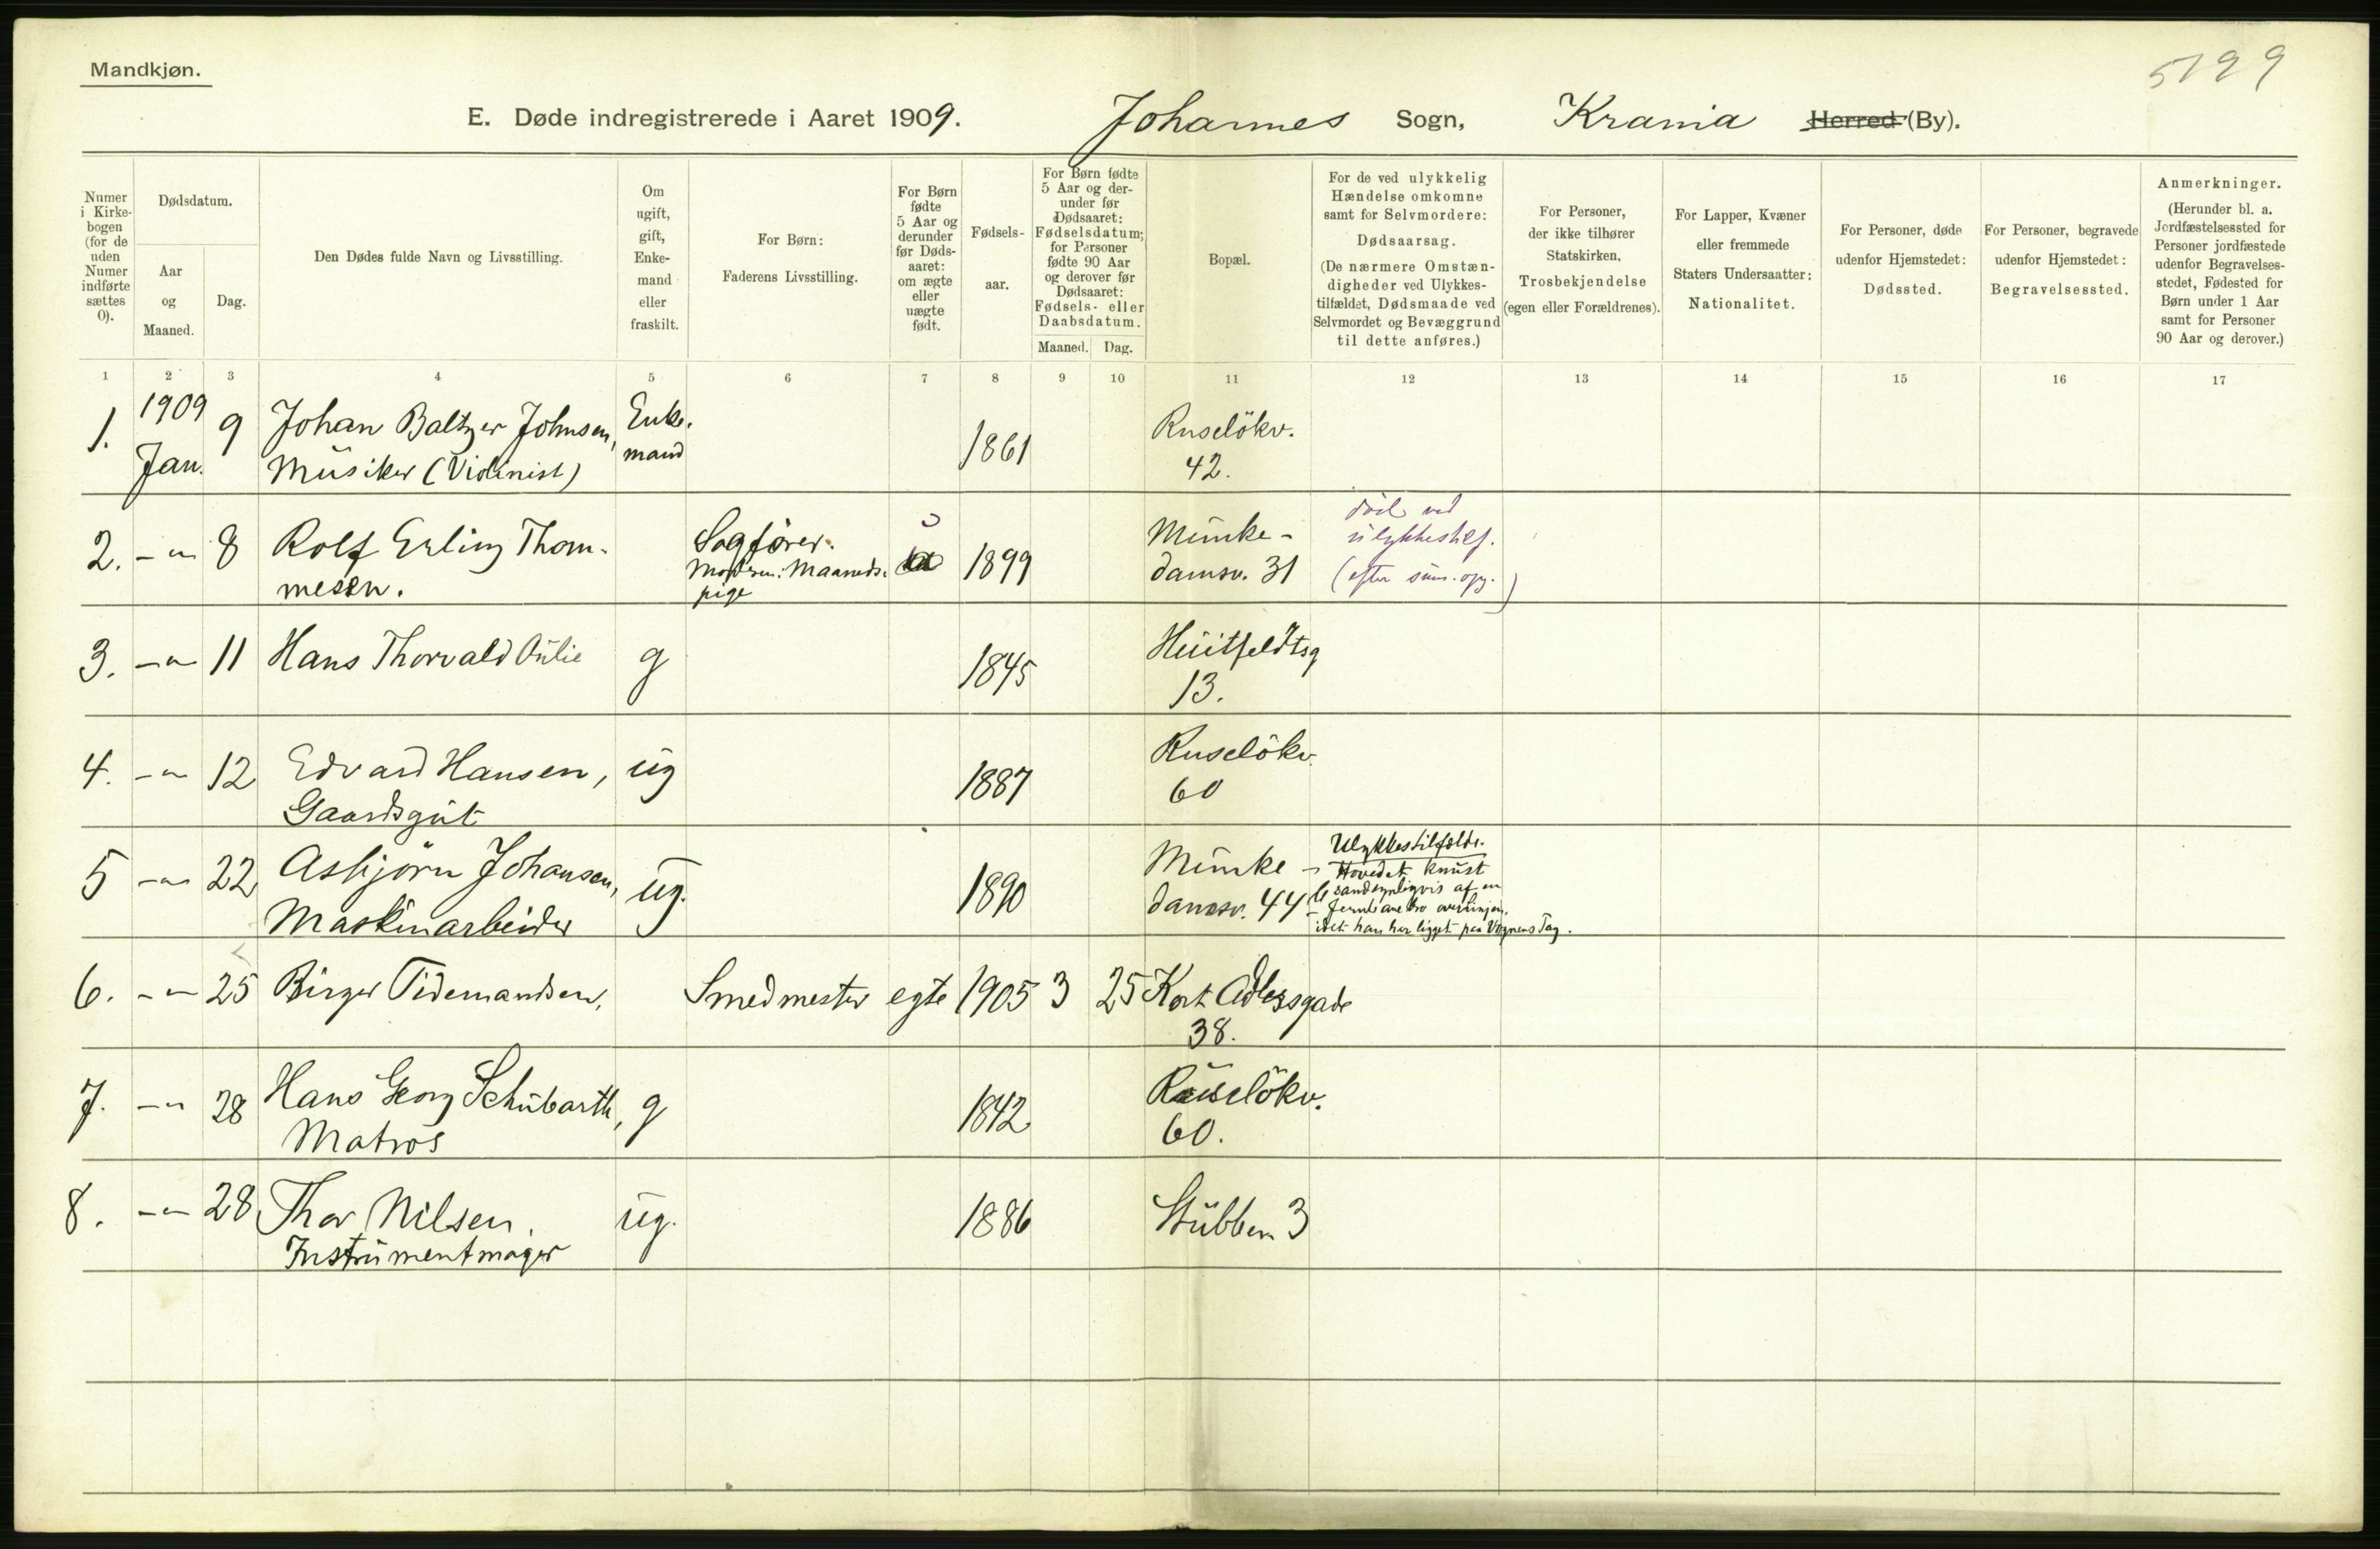 Mandkjøn.
5199
E. Døde indregistrerede i Aaret 1909. Johannes Sogn, Krania Herred (By).
Numer i Kirkebogen (for de uden Numer indførte sættes 0).
Dødsdatum.
Aar og Maaned.
Dag.
Den Dødes fulde Navn og Livsstilling.
Om ugift, gift, Enkemand eller fraskilt.
For Børn:
Faderens Livsstilling.
For Børn fødte 5 Aar og derunder før Dødsaaret: om ægte eller uægte født.
Fødselsaar.
For Børn fødte 5 Aar og derunder før Dødsaaret: Fødselsdatum; for Personer fødte 90 Aar og derover før Dødsaaret: Fødsels- eller Daabsdatum.
Maaned. Dag.
Bopæl.
For de ved ulykkelig Hændelse omkomne samt for Selvmordere:
Dødsaarsag.
(De nærmere Omstændigheder ved Ulykkestilfældet, Dødsmaade ved Selvmordet og Bevæggrund til dette anføres.)
For Personer, der ikke tilhører Statskirken,
Trosbekjendelse
(egen eller Forældrenes).
For Lapper, Kvæner eller fremmede Staters Undersaatter:
Nationalitet.
For Personer, døde udenfor Hjemstedet:
Dødssted.
For Personer, begravede udenfor Hjemstedet:
Begravelsessted.
Anmerkninger.
(Herunder bl. a. Jordfæstelsessted for Personer jordfæstede udenfor Begravelsesstedet, Fødested for Børn under 1 Aar samt for Personer 90 Aar og derover.)
1 2 3 4 5 6 7 8 9 10 11 12 13 14 15 16 17
1. 1909 Jan. 9 Johan Baltzer Johnsen, Enkemand 1861 Ruselökv.
Musiker (Violinist) 42.
2. -"- 8 Rolf Erling Thommesen. Sagförer. u 1899 Munkedamsv. 31 död ved
Moderen: Maanedspige ulykkestilf.
(efter sum. opg.)
3. -"- 11 Hans Thorvald Aulie g 1845 Huitfeldtsg
13.
4. -"- 12 Edvard Hansen, ug 1887 Ruselökv.
Gaardsgut 60
5 -"- 22 Asbjörn Johansen, ug. 1890 Munkedamsv. 44 Ulykkestilfælde.
Maskinarbeider Hovedet knust
sandsynligvis af en
Jernbanebro over linjen,
idet han har ligget paa Vognens Tag.
6. -"- 25 Birger Tidemandsen. Smedmester egte 1905 3 25 Kort Adlersgade
38.
7. -"- 28 Hans Georg Schubarth, g 1842 Ruselökv.
Matros 60.
8. -"- 28 Thor Nilsen. ug. 1886 Stubben 3
Instrumentmager